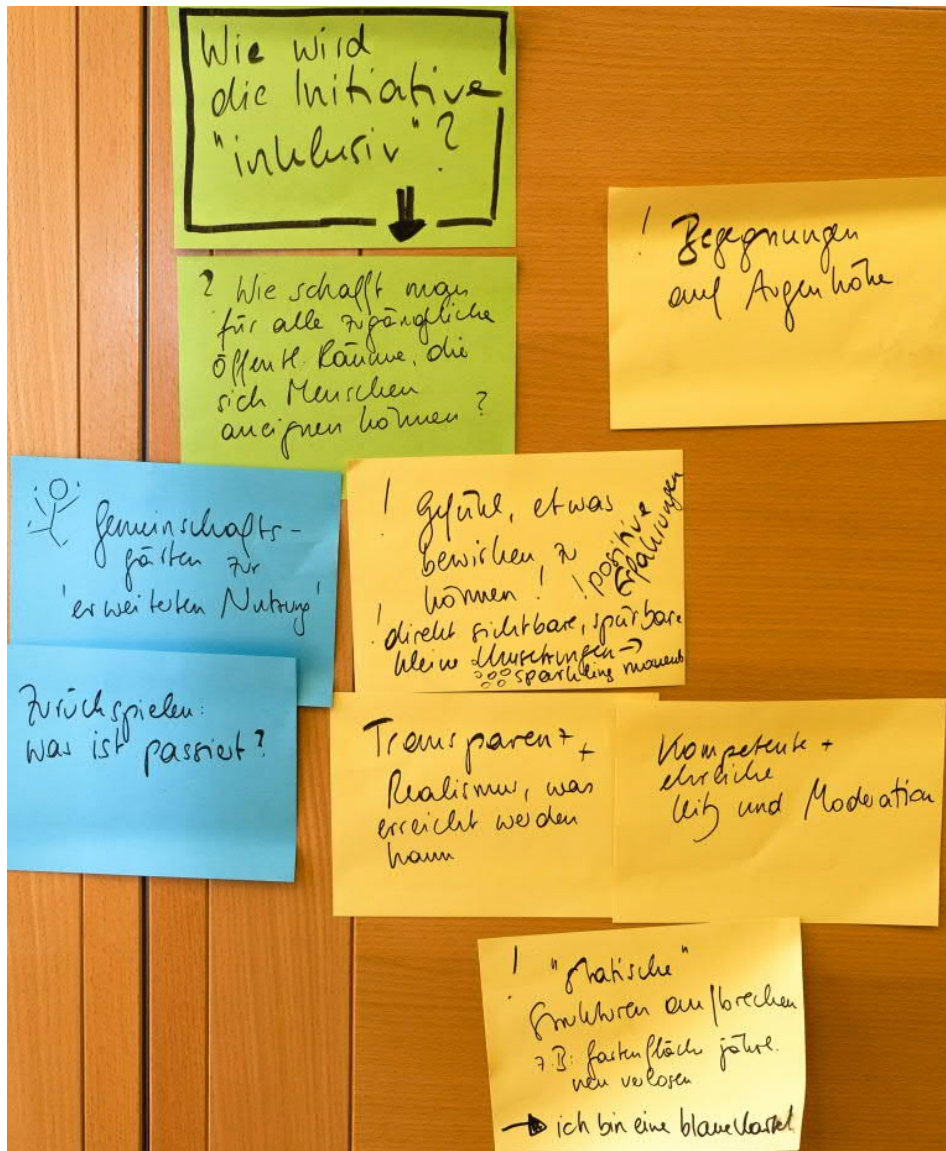 Wie wird
die Initiative
"inklusiv"?
? Wie schafft man
für alle zugängliche
öffentl. Räume, die
sich Menschen
aneignen können?
! Begegnungen
auf Augenhöhe
Gemeinschafts-
gärten zur
'erweiterten Nutzung'
! Gefühl, etwas
bewirken zu
können!
! positive
Erfahrungen
! direkt sichtbare, spürbare
kleine Umsetzungen →
sparkling moments
Zurückspielen:
was ist passiert?
Transparenz +
Realismus, was
erreicht werden
kann
Kompetente +
ehrliche
und Moderation
! "statische"
Strukturen aufbrechen
z.B: Gartenfläche jährl.
neu verlosen
→ ich bin eine blaue Karte!